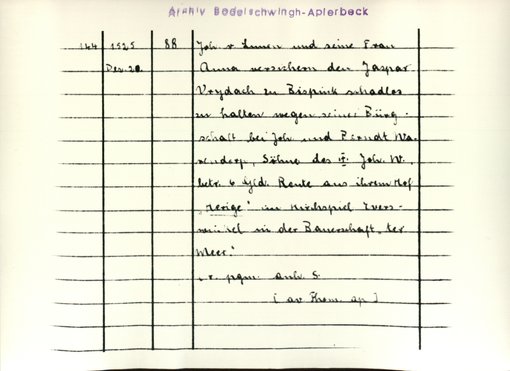 Archiv Bodelschwingh-Aplerbeck
144 1525 88 Joh. v. Lunen und seine Frau
Dez. 20. Anna versichern den Jaspar
Vrydach zu Bispink schadlos
zu halten wegen seiner Bürg-
schaft bei Joh. und Berndt Wa-
rendorp, Söhne des † Joh. W.,
betr. 6 Gld. Rente aus ihrem Hof
im Kirchspiel Evers-
winkel in der Bauerschaft „ter
Meer."
pgm. anh. S.